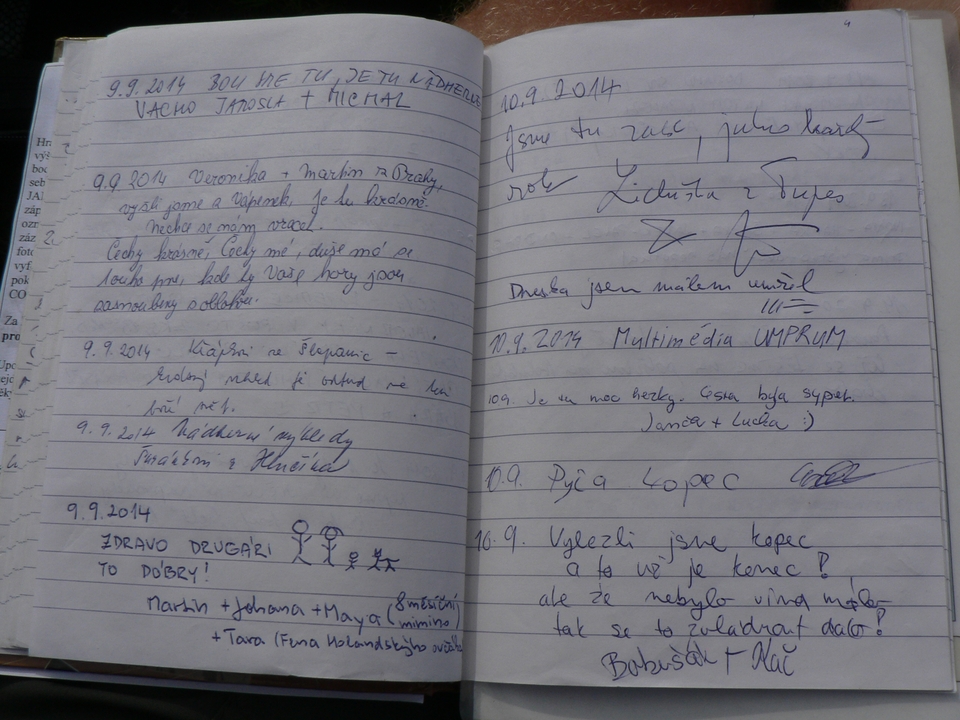 9.9.2014 BOLI JSME TU, JE TU NÁDHERNĚ
VACHO JAROSLA + MICHAL
9.9 2014 Veronika + Martin z Prahy,
vyšli jsme a Vápenek. Je tu krásně.
Nechce se nám vracet.
Čechy krásné, Čechy mé, duše má se
touhou pne, kde ty Vaše hory jsou
zasnoubeny s oblohou.
9.9.2014 ze Štěpanic –
je odtud
9.9.2014 Nádherné výhledy
z Hlučína
9.9.2014
ZDRAVO DRUGARI
TO DOBRY!
Martin + Johana + Maya (8 měsíční mimino)
+ Tara (Fena Holandského ovčáka
4
10.9.2014
Jsme tu zase, jako každý
rok Liduška z Tupes
Dneska jsem málem umřel
10.9.2014 Multimédia UMPRUM
10.9. Je tu moc hezky. Cesta byla super.
Janča + Lucka :)
10.9. Pyča kopec
10.9. Vylezli jsme kopec
a to už je konec!
ale že nebylo vína málo
tak se to zvládnout dalo!
Bobušák + Kač